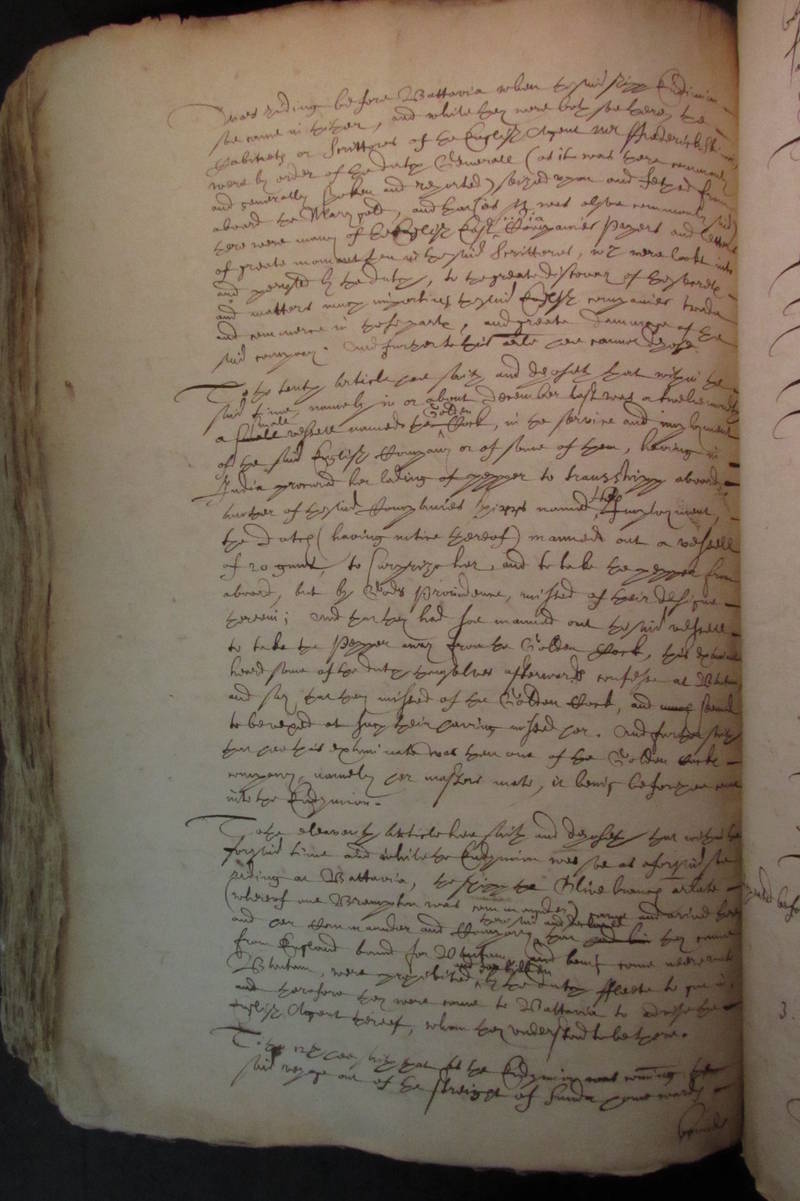 was riding before Battavia when the said shipp Endimion
she came in thither, and while they were both there, the
Cabinets or Scrittores of the English Agent mr ffrederick
were by order of the dutch Generall (as it was there commonly
and generally spoken and reported) seized upon and fetched from
aboard the Marygold, and that (as it was alsoe commonly said)
there were many of the English East India Companies papers and letters
of greate moment then in the said Scrittores, wch were lookt into
and perused by the dutch, to the greate discovery of the secrets
and matters much importing the said English companies trade
and commerce in those parts, and greate dammage of the
said company. And further to this article hee cannot depose.
To the tenth Article hee saith and deposeth that within the
said time, namely in or about december last was a twelve moneth
a small vessell named the Golden Cock, in the service and imployment
of the said English Company or of some of them, having in
India procured her lading of pepper to transshipp aboard
another of the said Companies shipps named the Employment,
the dutch (having notice thereof) manned out a vessell
of 20 gunns, to surprize her, and to take the pepper from
aboard, but by Gods Providence, missed of their designe
therein; And that they had soe manned out the said vessell
to take the Pepper away from the Golden Cock, this examinate
heard some of the dutch themselves afterwards confesse at Bantam
and say that they missed of the Golden Cock, and seemed
to be vexed at such their having missed her. And further saith
that hee this examinate was then one of the Golden Cocks
company, namely her masters mate, it being before hee came
into the Endymion.
To the eleaventh Article hee saith and deposeth that within the
foresaid time and while the Endymion was soe as aforesaid
riding at Battavia, the shipp the Olive branch arlate
(whereof one Brampton was commander) came and arived there
and her Commander and Company that they came
from England bound for Bantam, and being come neere
Bantam, were prohibited by the dutch ffleete to goe in,
and therefore they were come to Battavia to advise the
English Agent thereof, whom they understood to be there.
To the 12th hee saith that as the Endymion was coming the
said voyage out of the streight of Sunda homewards
bound